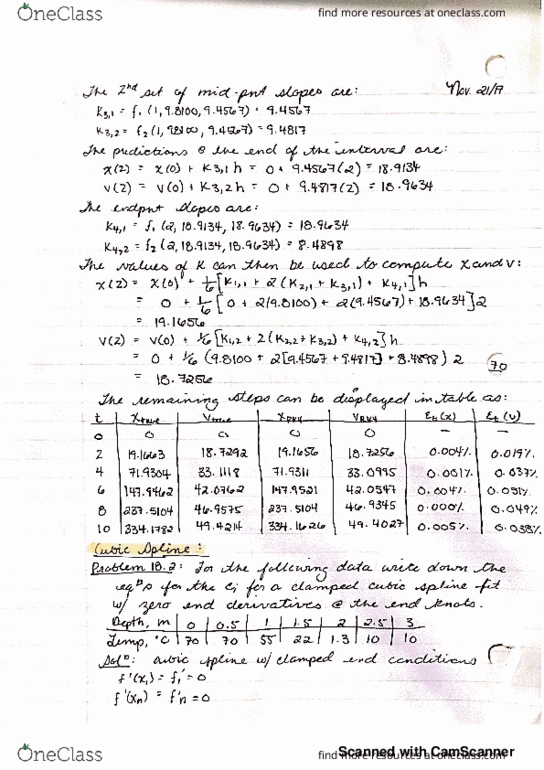 OneClass
find more resources at oneclass.com
The 2nd set of mid-pnt slopes are: Nov. 21/17
K3,1 = f1 (1, 9.8100, 9.4567) = 9.4567
K3,2 = f2 (1, 9.8100, 9.4567) = 9.4817
The predictions @ the end of the interval are:
x(2) = x(0) + K3,1 h = 0 + 9.4567(2) = 18.9134
V(2) = V(0) + K3,2 h = 0 + 9.4817(2) = 18.9634
The endpnt slopes are:
K4,1 = f1 (2, 18.9134, 18.9634) = 18.9634
K4,2 = f2 (2, 18.9134, 18.9634) = 8.4898
The values of K can then be used to compute x and v:
x(2) = x(0) + 1/6 [K1,1 + 2(K2,1 + K3,1) + K4,1] h
= 0 + 1/6 [0 + 2(9.8100) + 2(9.4567) + 18.9634] 2
= 19.1656
V(2) = V(0) + 1/6 [K1,2 + 2(K2,2 + K3,2) + K4,2] h
= 0 + 1/6 (9.8100 + 2[9.4567 + 9.4817] + 8.4898) 2
70
= 18.7256
The remaining steps can be displayed in table as:
t Xtrue Vtrue XRK4 VRK4 Et (x) Et (v)
0 0 0 0 0 — —
2 19.1663 18.7292 19.1656 18.7256 0.004% 0.019%
4 71.9304 33.1118 71.9311 33.0995 0.001% 0.037%
6 147.9462 42.0762 147.9521 42.0547 0.004% 0.051%
8 237.5104 46.9575 237.5104 46.9345 0.000% 0.049%
10 334.1782 49.4214 334.1626 49.4027 0.005% 0.038%
Cubic Spline:
Problem 18.2: For the following data write down the
eqns for the ci for a clamped cubic spline fit
w/ zero end derivatives @ the end knots.
Depth, m 0 0.5 1 1.5 2 2.5 3
Temp, °C 70 70 55 22 13 10 10
Soln: cubic spline w/ clamped end conditions
f'(x1) = f1' = 0
f'(xn) = f'n = 0
Scanned with CamScanner
OneClass
find more resources at oneclass.com